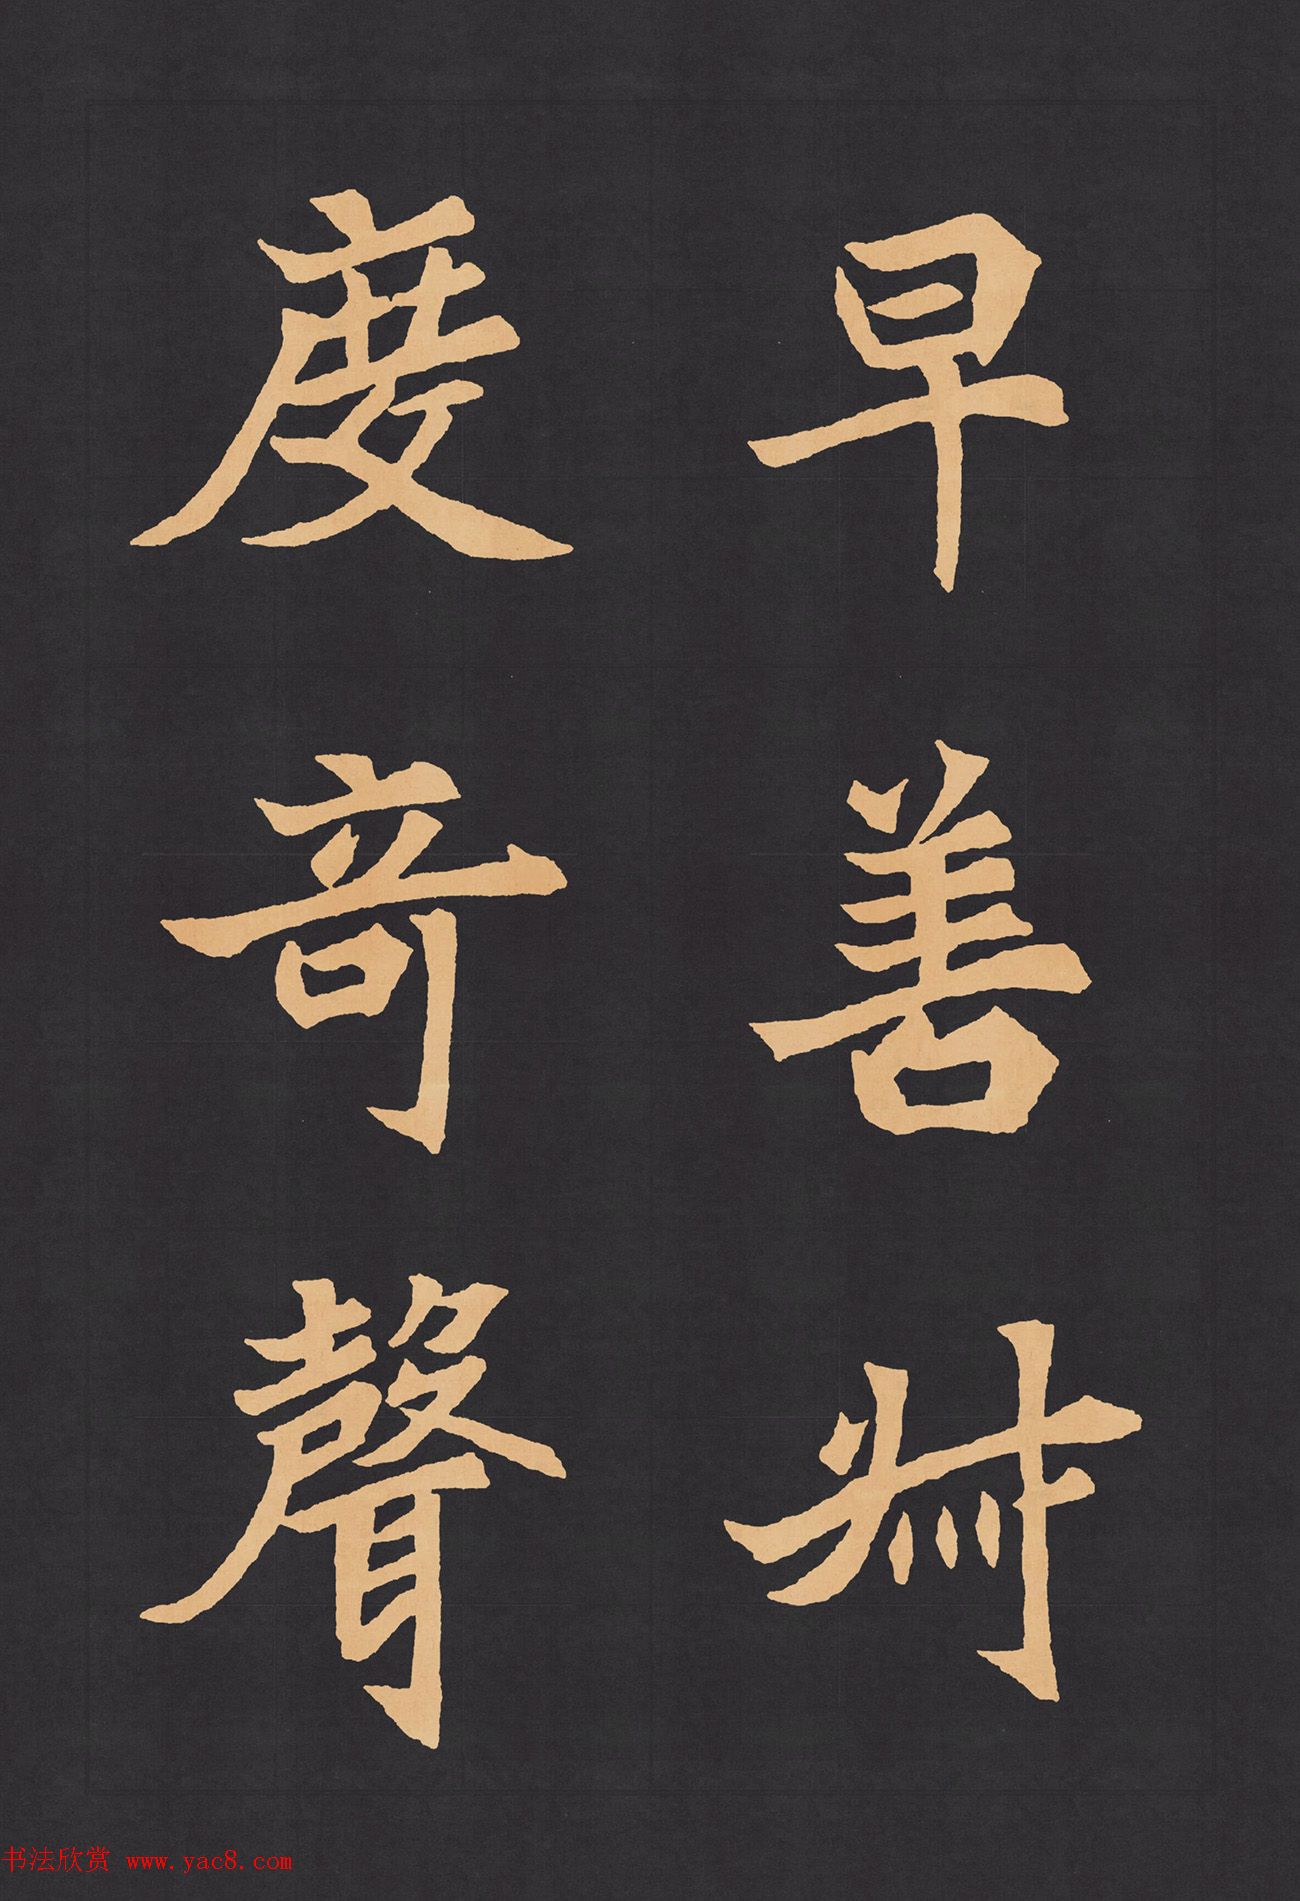 早善
度奇聲
书法欣赏 www.yac8.com